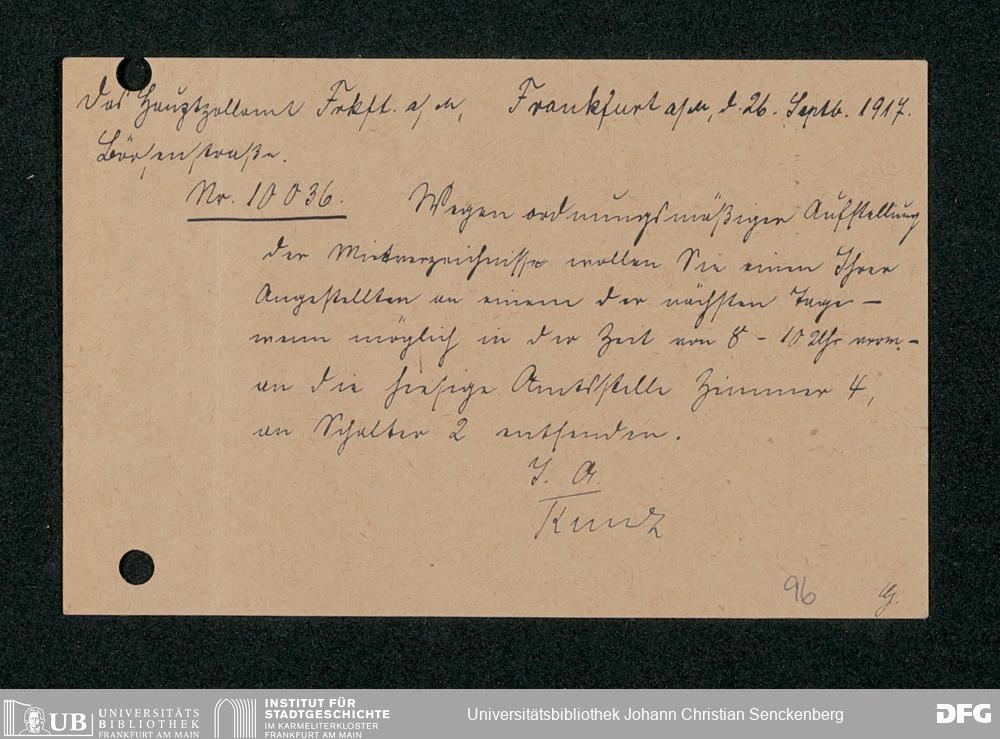 Das Hauptzollamt Frkft. a/M, Frankfurt a/M, d. 26. Septb. 1917.
Börsenstraße.
Nr. 10036. Wegen ordnungsmäßiger Aufstellung
der Mietverzeichnisse wollen Sie einen Ihrer
Angestellten an einem der nächsten Tage –
wenn möglich in der Zeit von 8 – 10 Uhr vorm. –
an die hiesige Amtsstelle Zimmer 4,
an Schalter 2 entsenden.
I. A.
Kunz
96
UB UNIVERSITÄTS
BIBLIOTHEK
FRANKFURT AM MAIN
INSTITUT FÜR
STADTGESCHICHTE
IM KARMELITERKLOSTER
FRANKFURT AM MAIN
Universitätsbibliothek Johann Christian Senckenberg
DFG